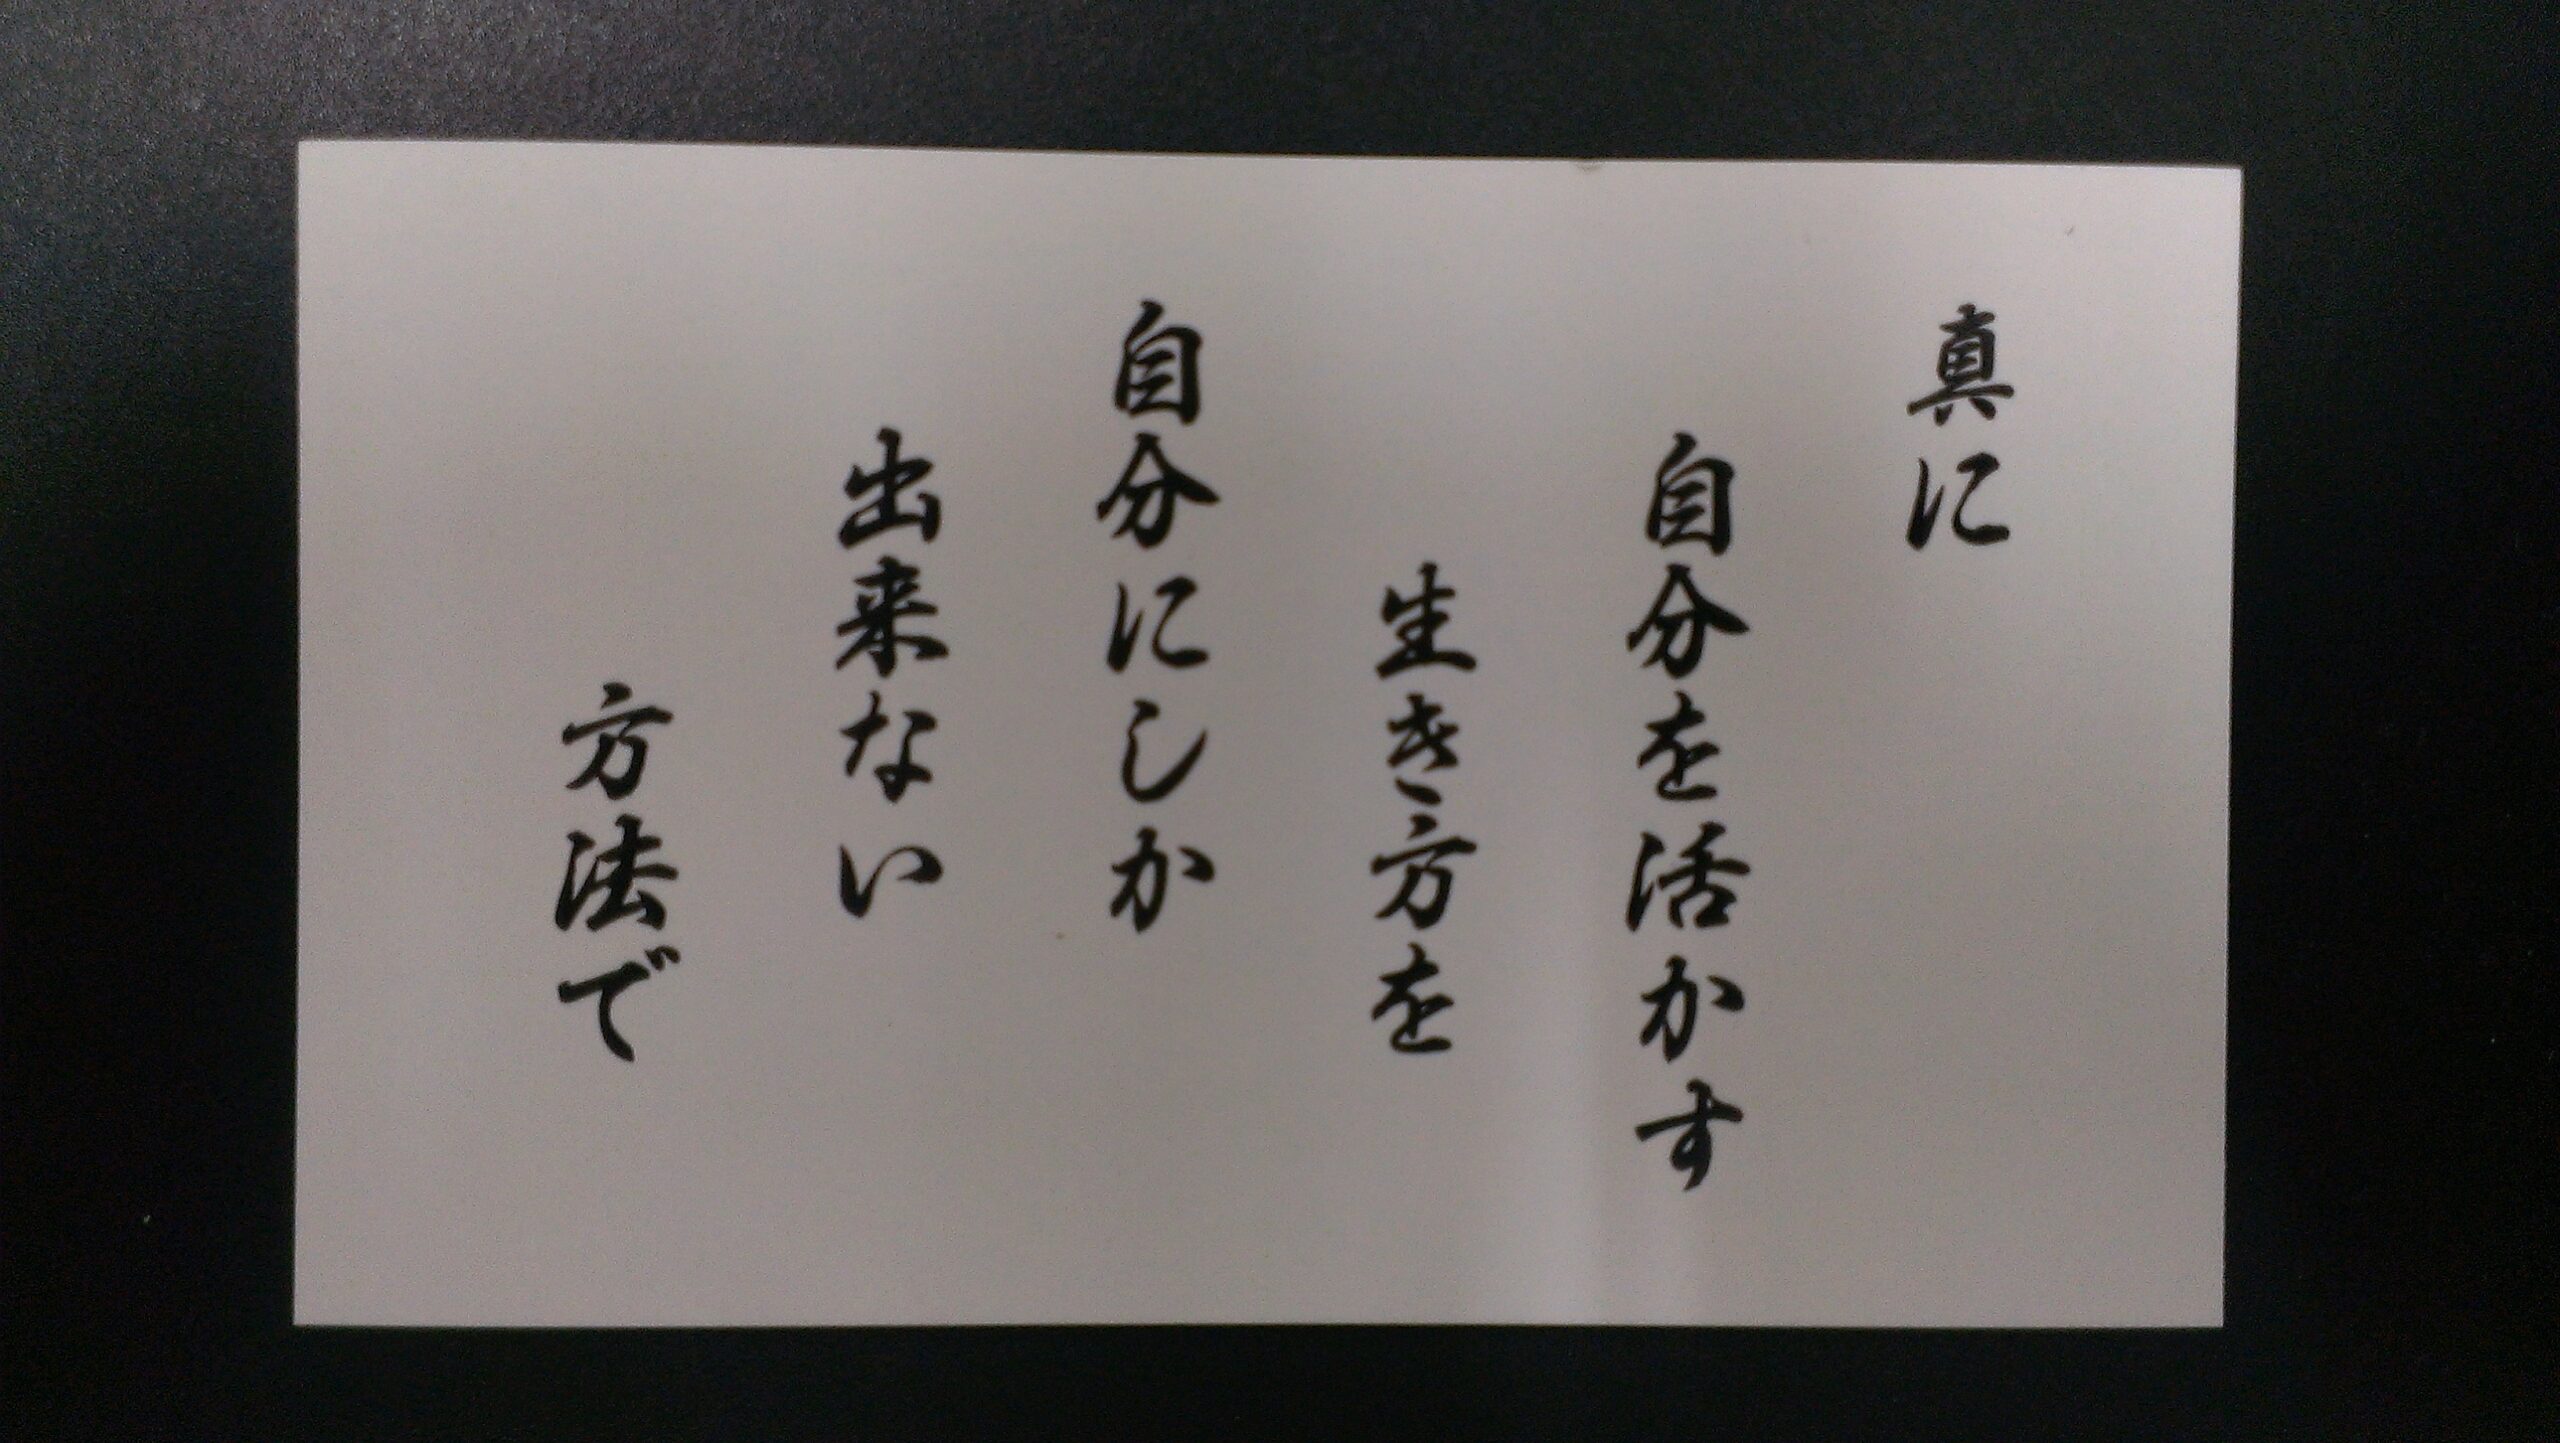 真に
自分を活かす
生き方を
自分にしか
出来ない
方法で